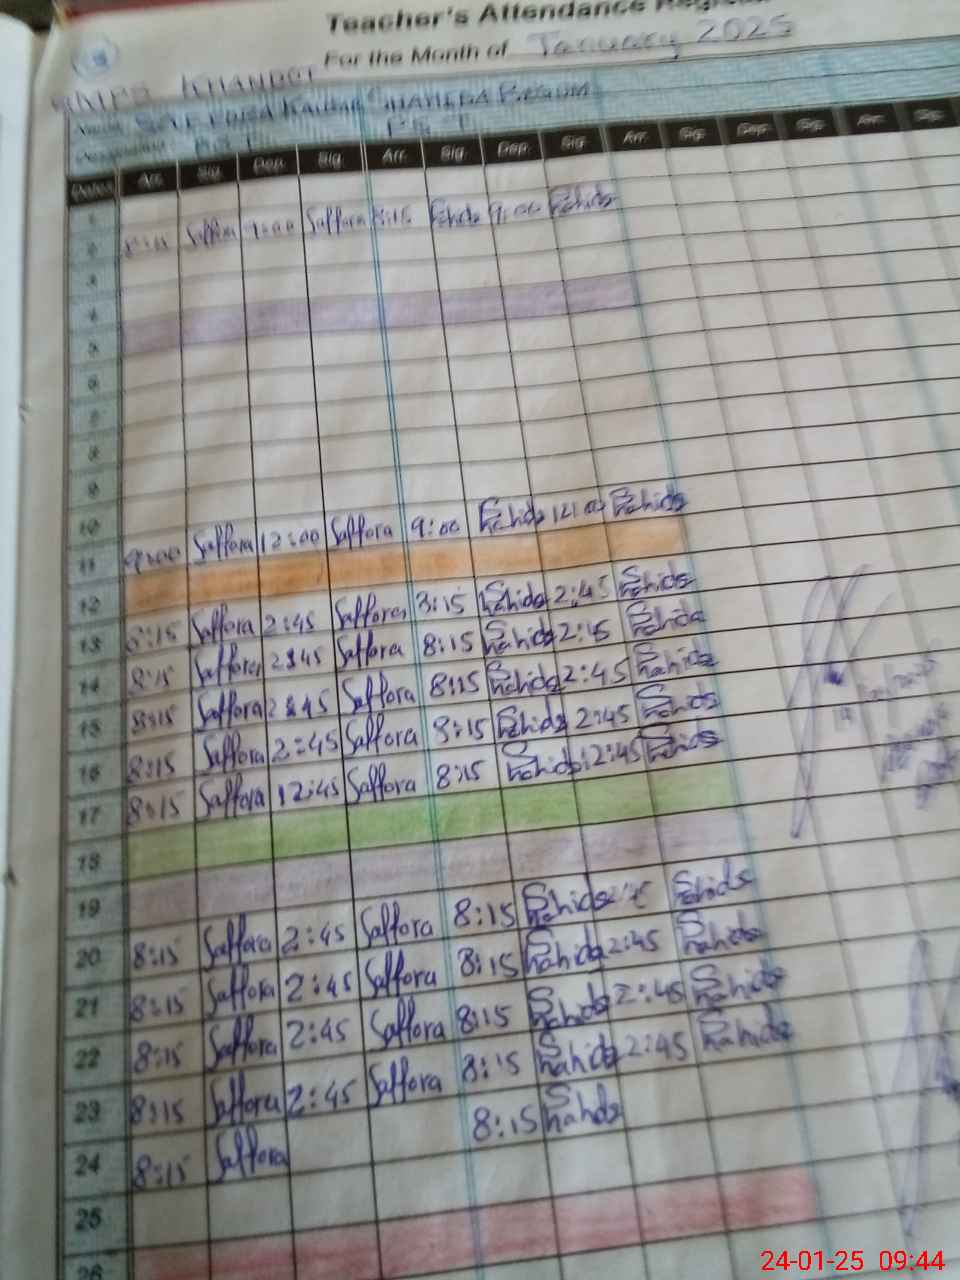 Teacher's Attendance Register
For the Month of January 2025
GMPS KHANPUR
SHAHEDA BEGUM
PST PST
Dates Arr. Sig. Dep. Sig. Arr. Sig. Dep. Sig. Arr. Sig. Dep. Sig. Arr. Sig.
1
2 8:15 Saffora 9:00 Saffora 8:15 Shahida 9:00 Shahida
3
4
5
6
7
8
9
10
11 9:00 Saffora 12:00 Saffora 9:00 Shahida 12:00 Shahida
12
13 8:15 Saffora 2:45 Saffora 8:15 Shahida 2:45 Shahida
14 8:15 Saffora 2:45 Saffora 8:15 Shahida 2:45 Shahida
15 8:15 Saffora 2:45 Saffora 8:15 Shahida 2:45 Shahida
16 8:15 Saffora 2:45 Saffora 8:15 Shahida 2:45 Shahida
17 8:15 Saffora 12:45 Saffora 8:15 Shahida 12:45 Shahida
18
19
20 8:15 Saffora 2:45 Saffora 8:15 Shahida 2:45 Shahida
21 8:15 Saffora 2:45 Saffora 8:15 Shahida 2:45 Shahida
22 8:15 Saffora 2:45 Saffora 8:15 Shahida 2:45 Shahida
23 8:15 Saffora 2:45 Saffora 8:15 Shahida 2:45 Shahida
24 8:15 Saffora 8:15 Shahida
25
26
24-01-25 09:44